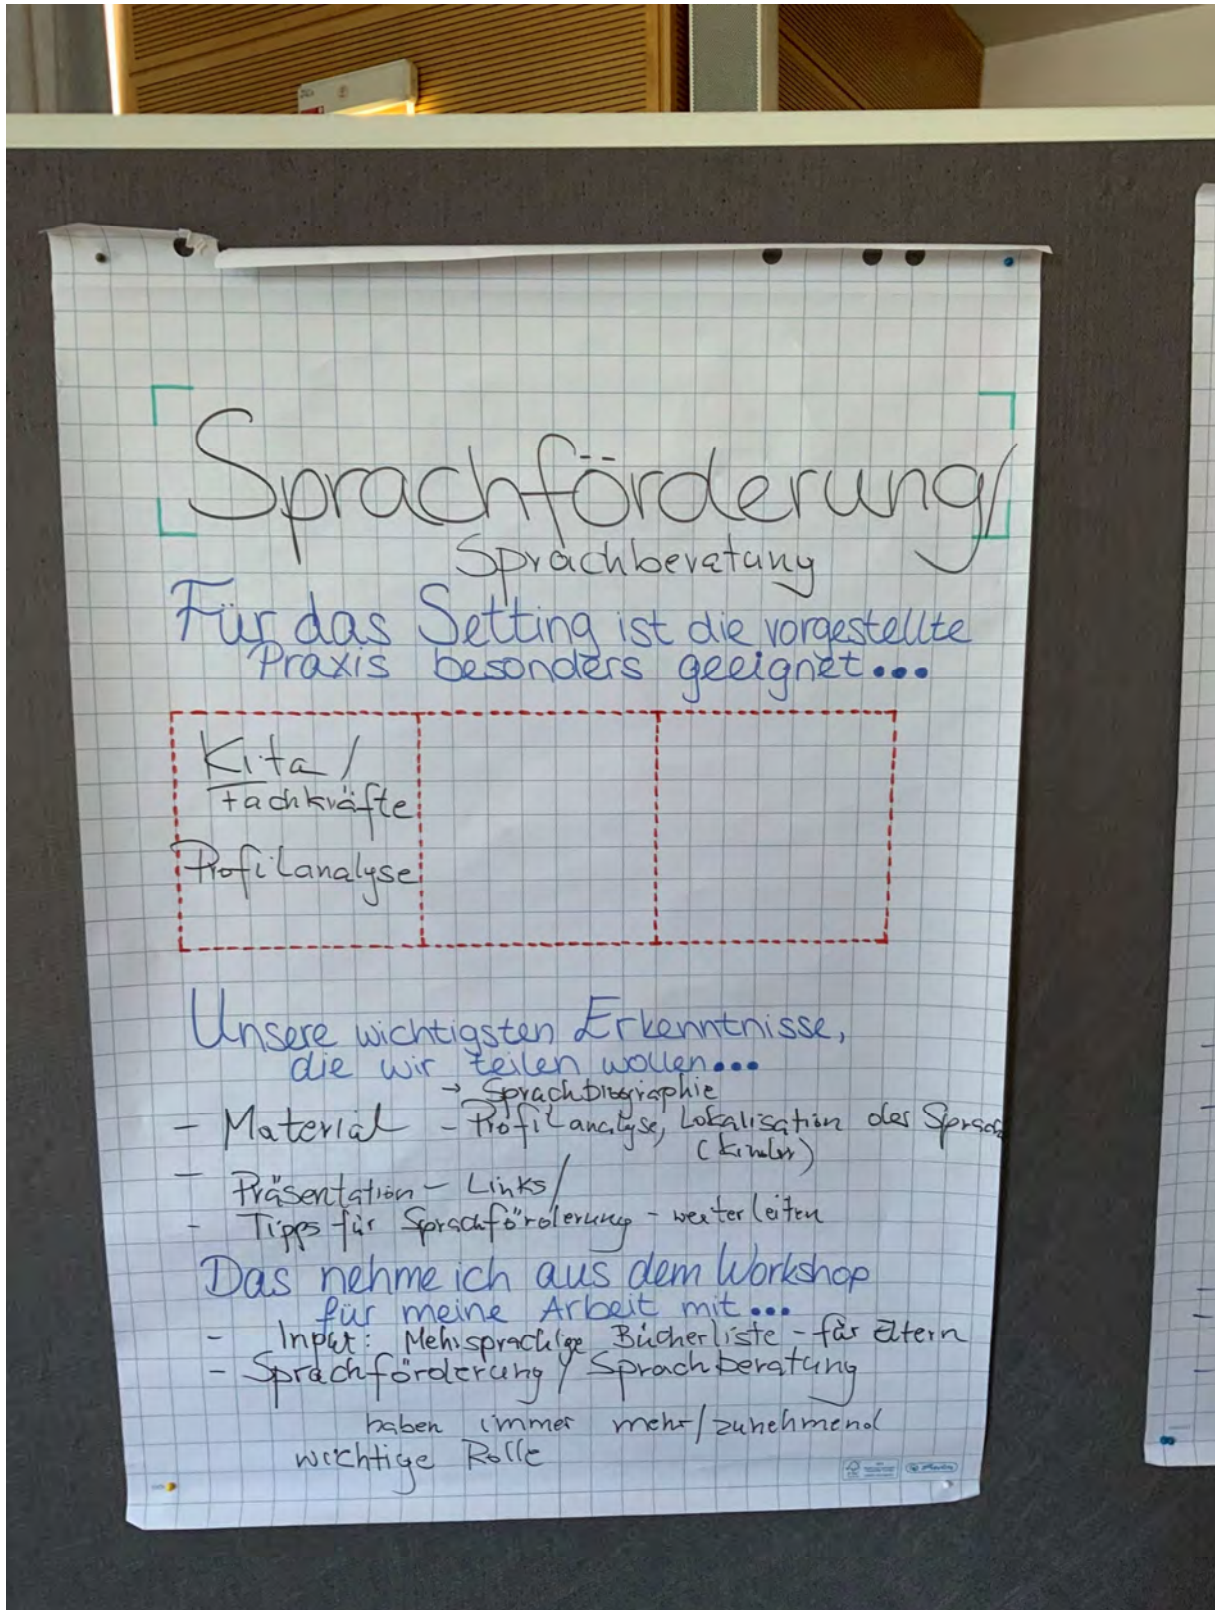 Sprachförderung/
Sprachberatung
Für das Setting ist die vorgestellte
Praxis besonders geeignet...
Kita /
Fachkräfte
Profilanalyse
Unsere wichtigsten Erkenntnisse,
die wir teilen wollen...
→ Sprachbiographie
- Material - Profilanalyse, Lokalisation des Sprach
(Kinder)
- Präsentation - Links/
- Tipps für Sprachförderung - weiterleiten
Das nehme ich aus dem Workshop
für meine Arbeit mit...
- Input: Mehrsprachige Bücherliste - für Eltern
- Sprachförderung / Sprachberatung
haben immer mehr/zunehmend
wichtige Rolle